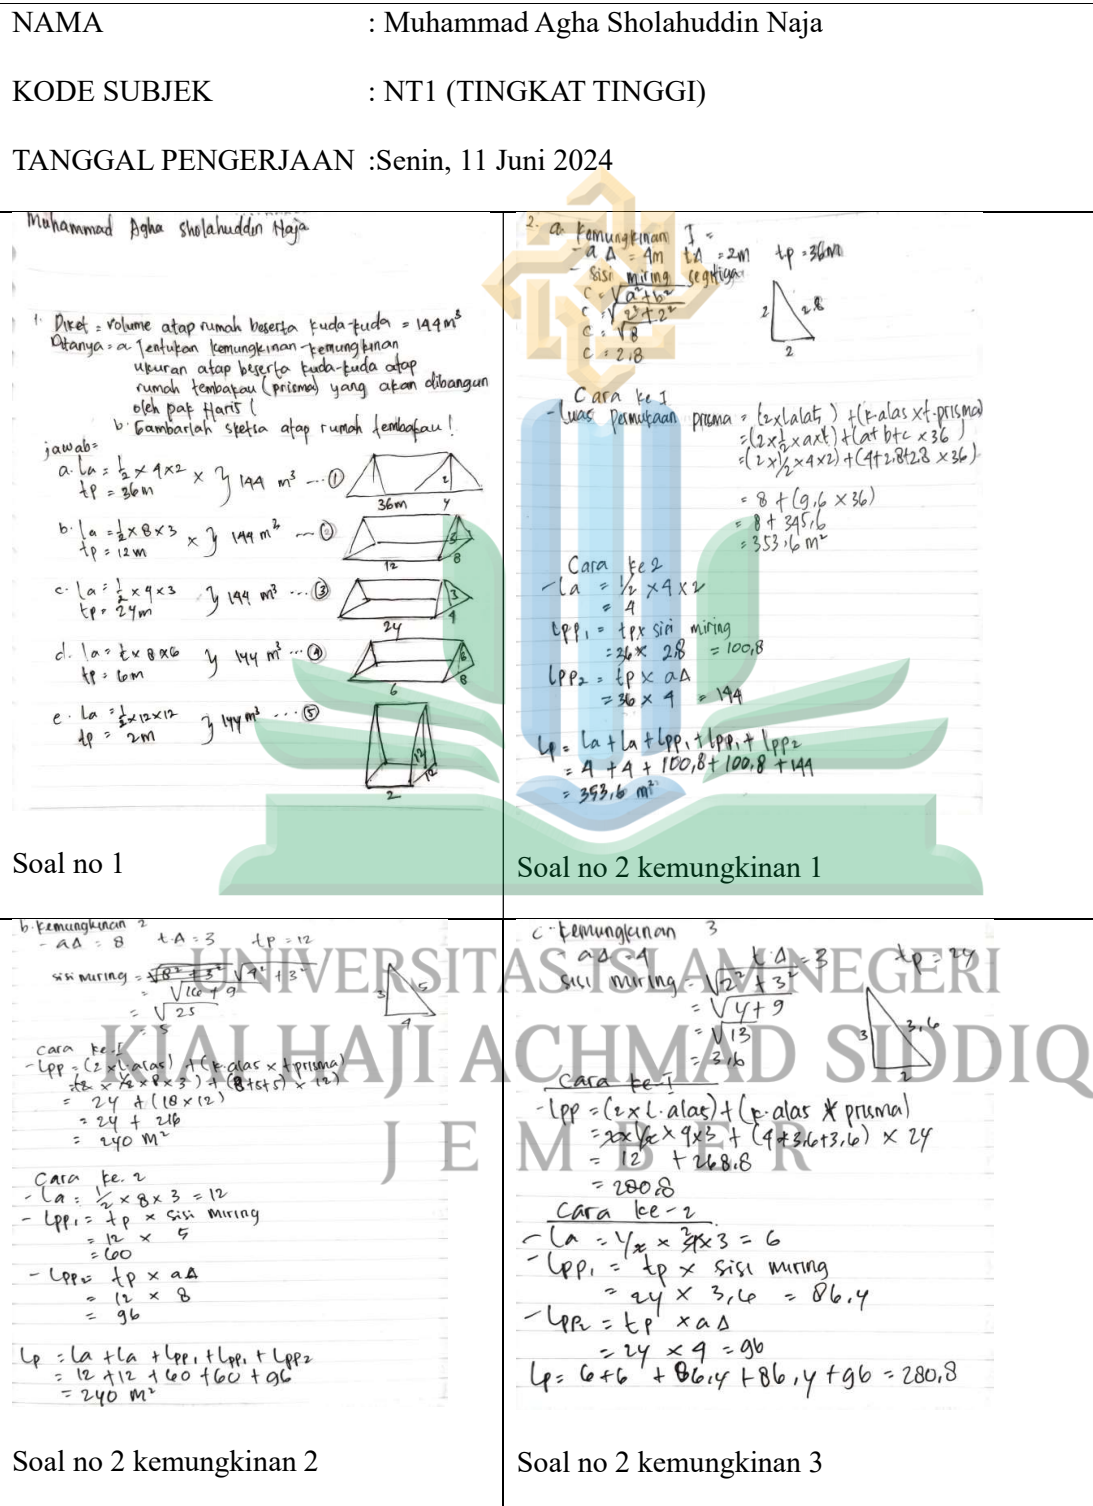 NAMA : Muhammad Agha Sholahuddin Naja
KODE SUBJEK : NT1 (TINGKAT TINGGI)
TANGGAL PENGERJAAN :Senin, 11 Juni 2024
Muhammad Agha Sholahuddin Naja
1. Diket = Volume atap rumah beserta kuda-kuda = 144 m³
Ditanya = a. Tentukan kemungkinan-kemungkinan
ukuran atap beserta kuda-kuda atap
rumah tembakau (prisma) yang akan dibangun
oleh pak Haris (
b. Gambarlah sketsa atap rumah tembakau!
jawab=
a. La = 1/2 × 4 × 2 × } 144 m³ ... ①
tp = 36m
36m 4 2
b. La = 1/2 × 8 × 3 × } 144 m³ ...
tp = 12m
12 8
c. La = 1/2 × 4 × 3 } 144 m³ ... ③
tp = 24m
24 4 3
d. La = 1/2 × 8 × 6 } 144 m³ ... ④
tp = 6m
6 8 6
e. La = 1/2 × 12 × 12 } 144 m³ ... ⑤
tp = 2m
2 12 12
Soal no 1
2. a. Kemungkinan I =
- a Δ = 4m tΔ = 2m tp = 36m
- Sisi miring segitiga
C = √a²+b²
C = √2²+2²
C = √8
C = 2,8
2 2,8 2
Cara ke I
- Luas Permukaan prisma = (2×l.alas) + (k.alas × t.prisma)
= (2×1/2×a×t) + (a+b+c × 36)
= (2×1/2×4×2) + (4+2,8+2,8 × 36)
= 8 + (9,6 × 36)
= 8 + 345,6
= 353,6 m²
Cara ke 2
- La = 1/2 × 4 × 2
= 4
Lpp₁ = tp × sisi miring
= 36 × 2,8 = 100,8
Lpp₂ = tp × aΔ
= 36 × 4 = 144
Lp = La + La + Lpp₁ + Lpp₁ + Lpp₂
= 4 + 4 + 100,8 + 100,8 + 144
= 353,6 m²
Soal no 2 kemungkinan 1
b. Kemungkinan 2
- aΔ = 8 t.Δ = 3 tp = 12
sisi miring = √8² + 3² √4² + 3²
= √16 + 9
= √25
= 5
3 5 4
Cara ke-I
- Lpp = (2 × L.alas) + (k.alas × t prisma)
= (2 × 1/2 × 8 × 3) + (8+5+5) × 12)
= 24 + (18 × 12)
= 24 + 216
= 240 m²
Cara ke. 2
- La = 1/2 × 8 × 3 = 12
- Lpp₁ = tp × sisi miring
= 12 × 5
= 60
- Lpp₂ = tp × aΔ
= 12 × 8
= 96
Lp = La + La + Lpp₁ + Lpp₁ + Lpp₂
= 12 + 12 + 60 + 60 + 96
= 240 m²
Soal no 2 kemungkinan 2
c. Kemungkinan 3
- aΔ = 4 tΔ = 3 tp = 24
sisi miring = √2² + 3²
= √4 + 9
= √13
= 3,6
3 3,6 2
Cara ke-I
- Lpp = (2 × L.alas) + (k.alas × prisma)
= 2 × 1/2 × 4 × 3 + (4+3,6+3,6) × 24
= 12 + 268,8
= 280,8
Cara ke-2
- La = 1/2 × 4 × 3 = 6
- Lpp₁ = tp × sisi miring
= 24 × 3,6 = 86,4
- Lpp₂ = tp × aΔ
= 24 × 4 = 96
Lp = 6+6 + 86,4 + 86,4 + 96 = 280,8
Soal no 2 kemungkinan 3
UNIVERSITAS ISLAM NEGERI
KIAI HAJI ACHMAD SIDDIQ
JEMBER